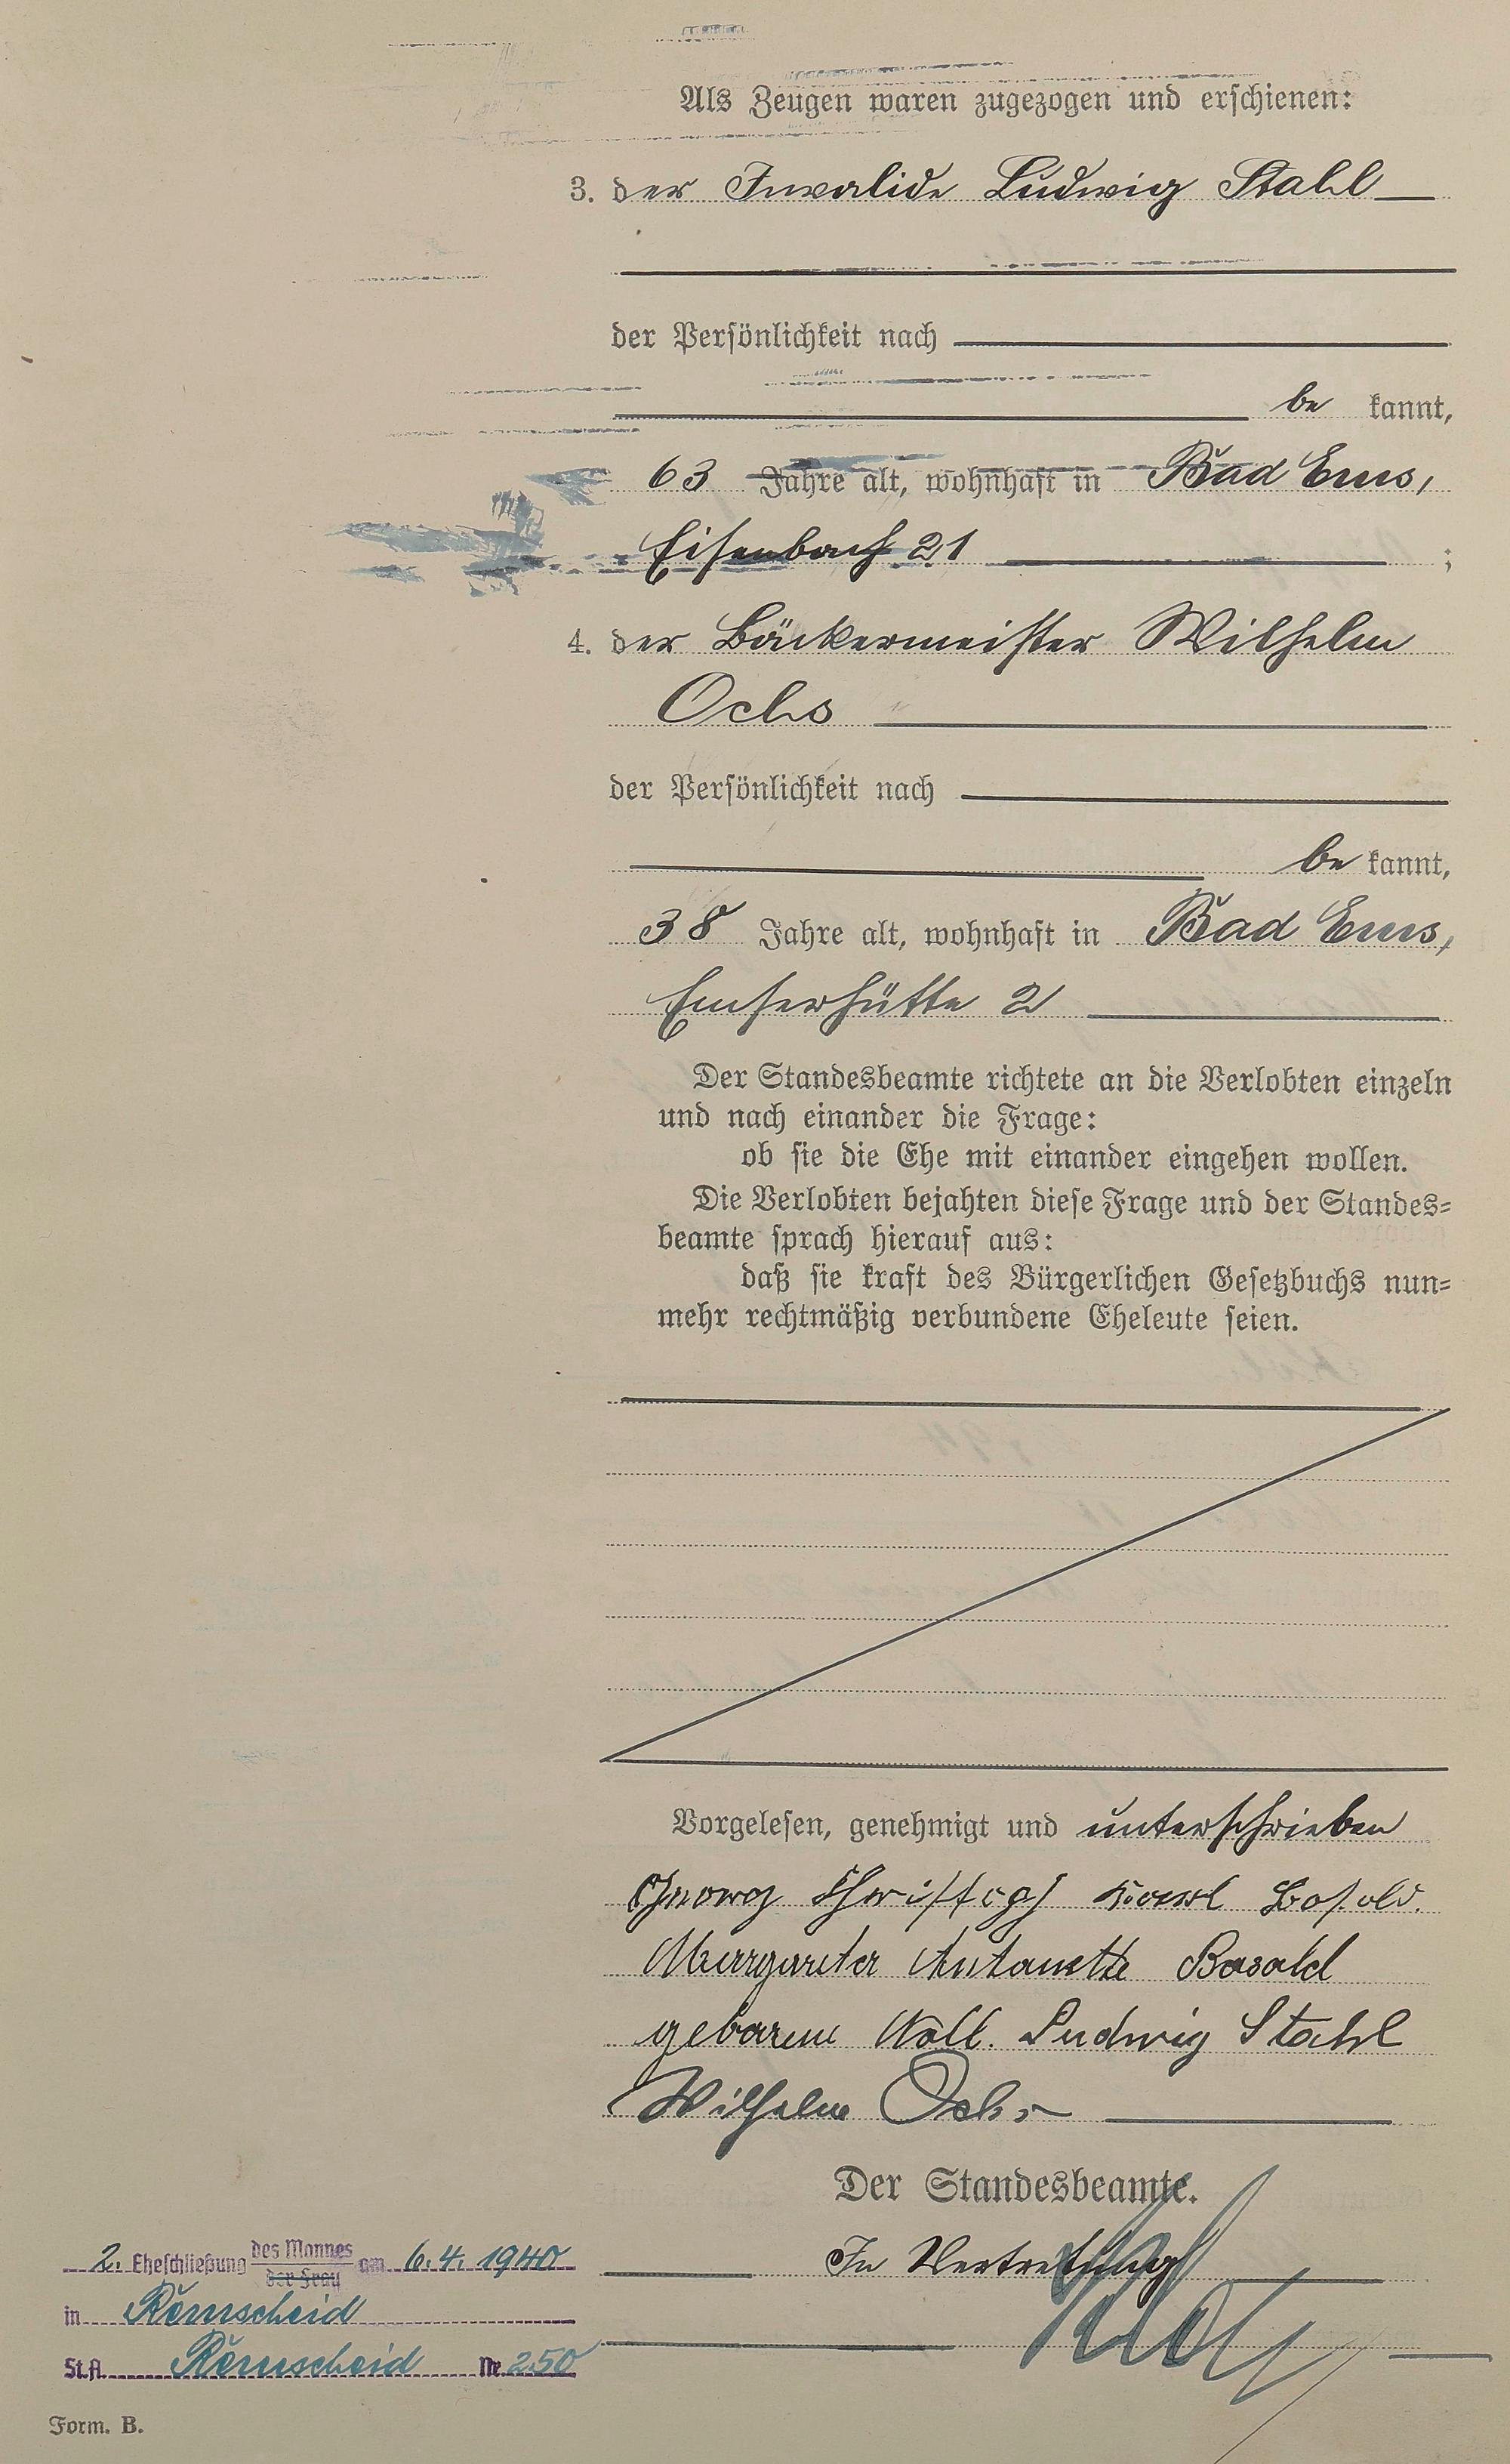 Als Zeugen waren zugezogen und erschienen:
3. der Invalide Ludwig Stahl
der Persönlichkeit nach
be kannt,
63 Jahre alt, wohnhaft in Bad Ems,
Eisenbach 21 ;
4. der Bäckermeister Wilhelm
Ochs
der Persönlichkeit nach
be kannt,
38 Jahre alt, wohnhaft in Bad Ems,
Emserhütte 2
Der Standesbeamte richtete an die Verlobten einzeln
und nach einander die Frage:
ob sie die Ehe mit einander eingehen wollen.
Die Verlobten bejahten diese Frage und der Standes=
beamte sprach hierauf aus:
daß sie kraft des Bürgerlichen Gesetzbuchs nun=
mehr rechtmäßig verbundene Eheleute seien.
Vorgelesen, genehmigt und unterschrieben
Georg Karl Bosold.
Margareta Antonette Bosold
geborene Noll. Ludwig Stahl
Wilhelm Ochs
Der Standesbeamte.
In Vertretung
2. Eheschließung des Mannes der Frau am 6.4.1940
in Remscheid
St.A. Remscheid Nr. 250
Form. B.